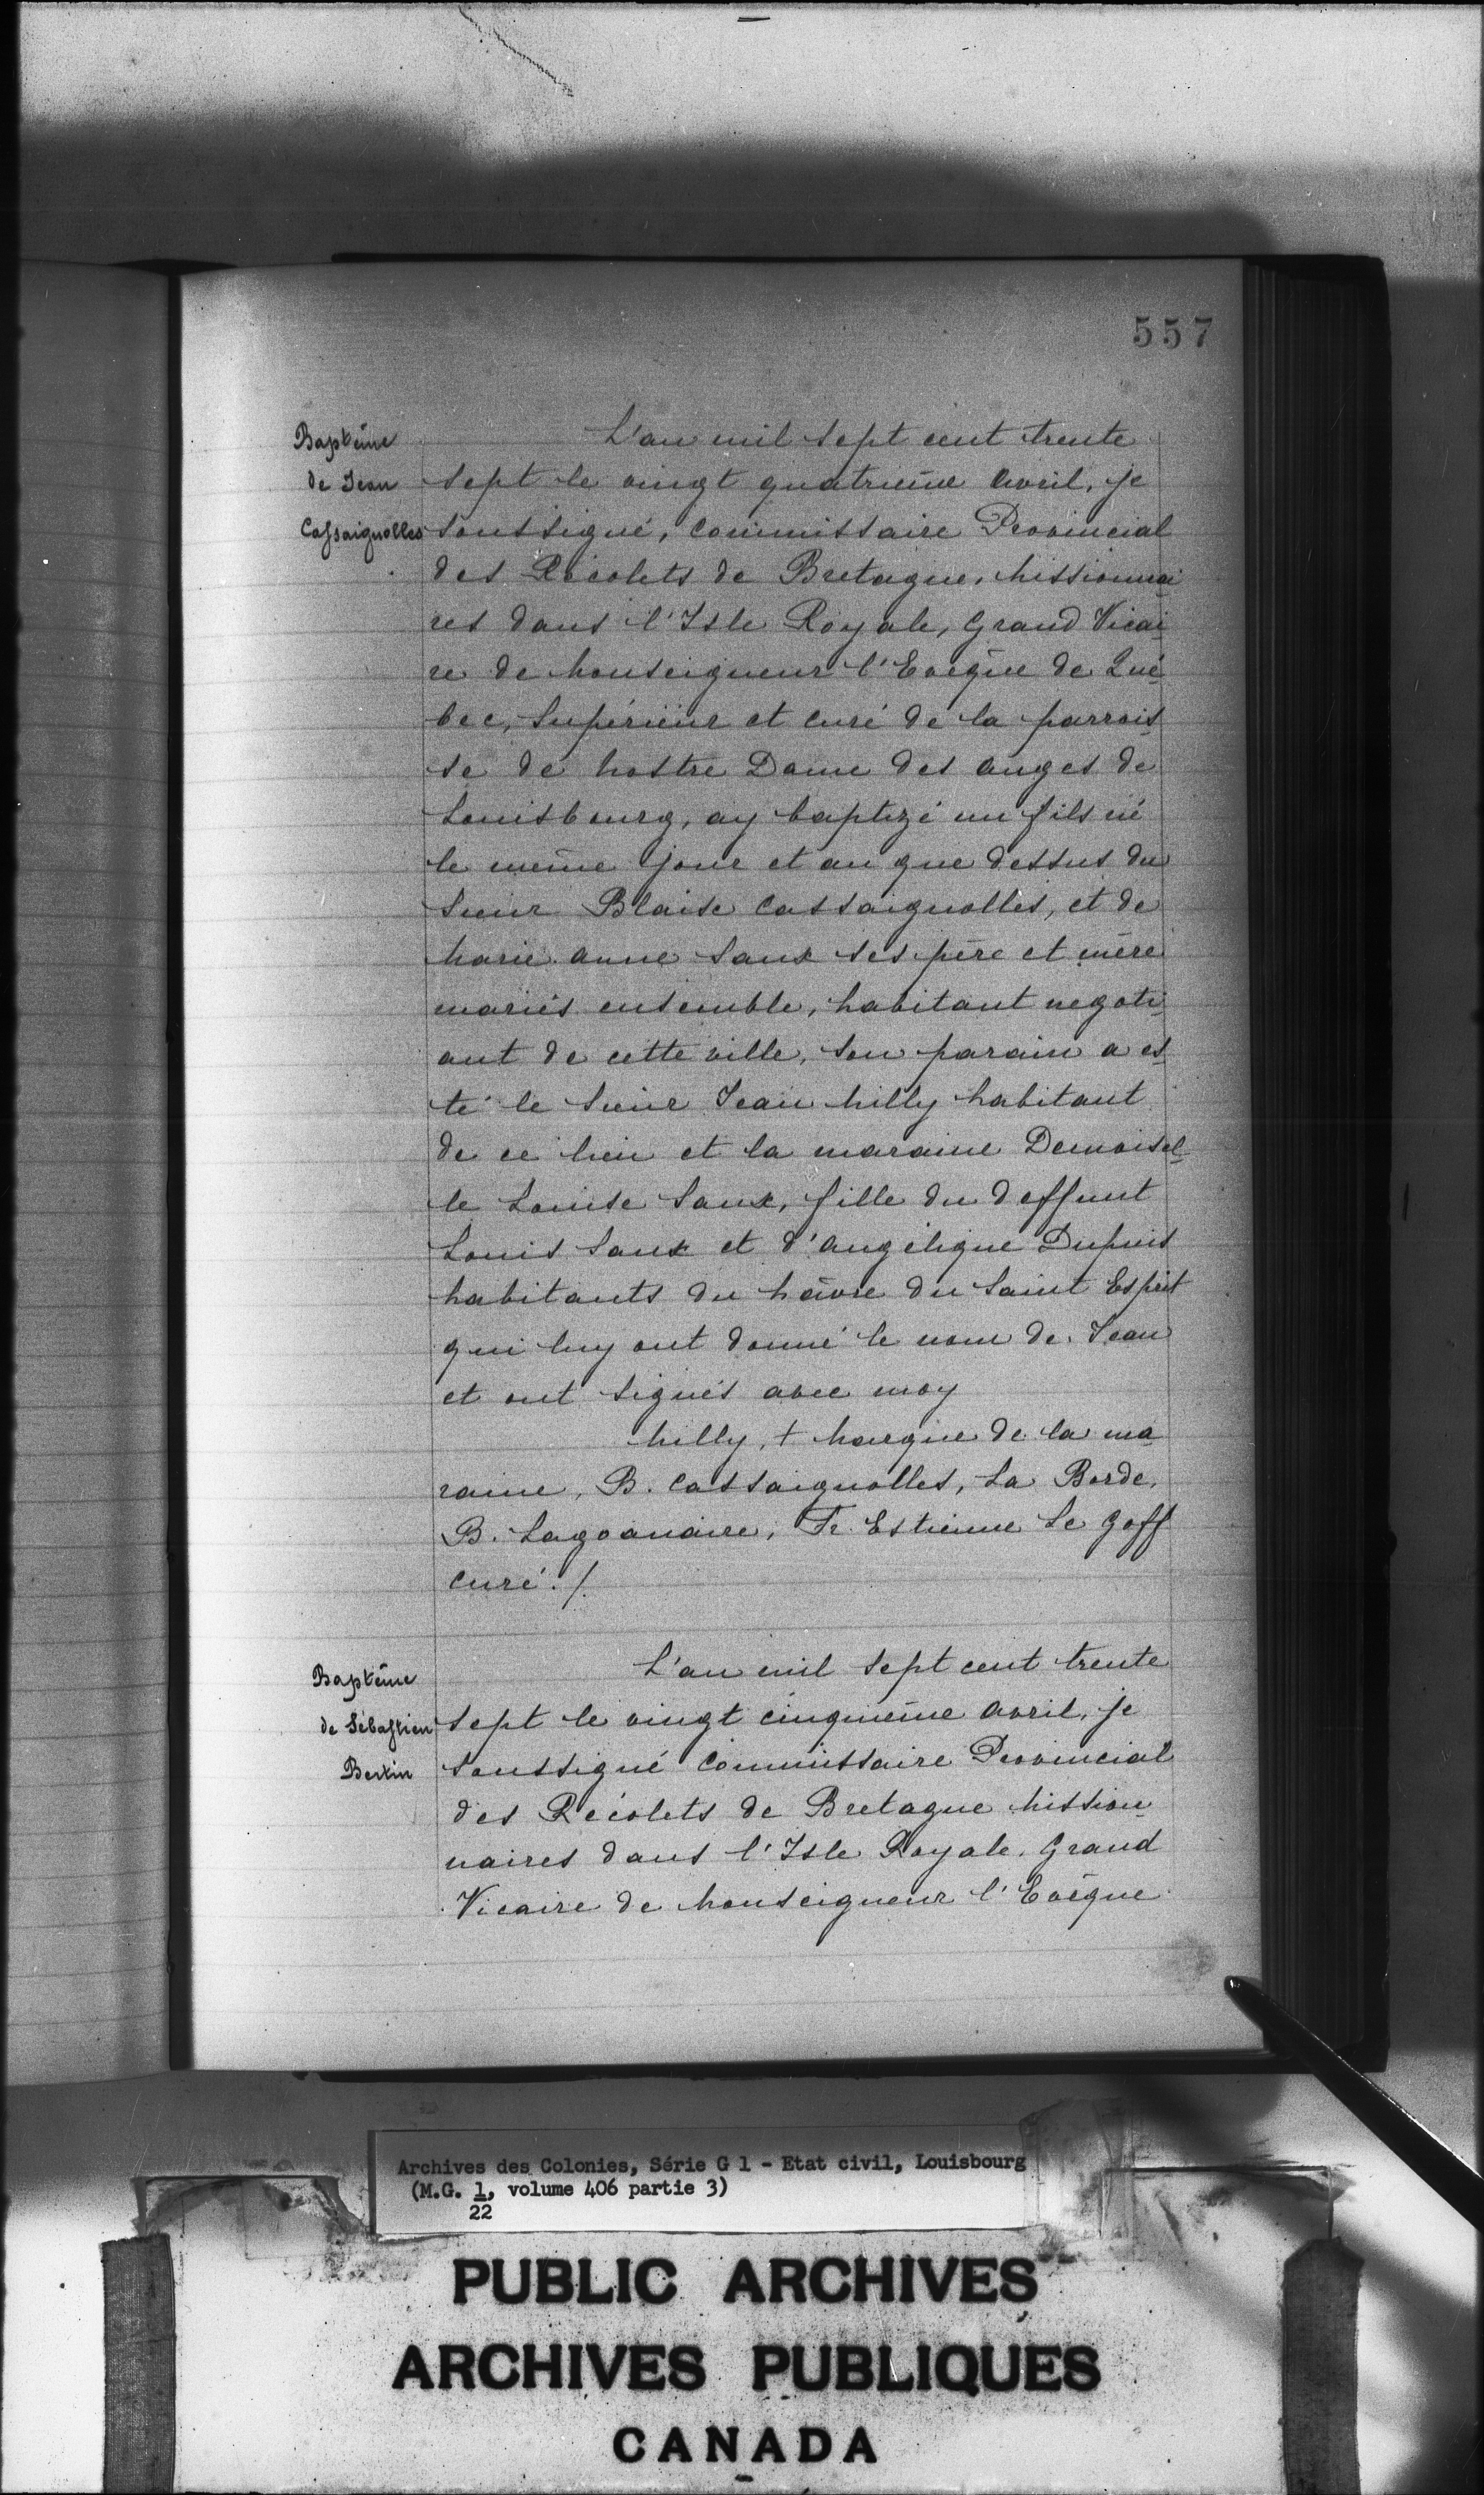 557
Baptême
de Jean
Cassaignolles
L'an mil sept cent trente
sept le vingt quatrième avril, je
soussigné, Commissaire Provincial
des Récolets de Bretagne, Missionnai
res dans l'Isle Royale, Grand Vicai
re de Monseigneur l'Evêque de Qué
bec, Supérieur et curé de la parrois
se de Nostre Dame des anges de
Louisbourg, ay baptizé un fils né
le même jour et an que dessus du
Sieur Blaise Cassaignolles, et de
Marie anne Saux ses père et mère
mariés ensemble, habitant negoti
ant de cette ville, son parain a es
té le Sieur Jean Milly habitant
de ce lieu et la maraine Demoisel
le Louise Saux, fille du deffunt
Louis Saux et d'Angélique Dupuis
habitants du hâvre du Saint Esprit
qui luy ont donné le nom de Jean
et ont signés avec moy
Milly, + Marque de la ma
raine, B. Cassaignolles, La Borde,
B. Lagoanaire, Fr. Estienne Le Goff
curé./.
Baptême
de Sébastien
Bertin
L'an mil sept cent trente
sept le vingt cinquième avril, je
soussigné Commissaire Provincial
des Récolets de Bretagne Mission
naires dans l'Isle Royale, Grand
Vicaire de Monseigneur l'Evêque
Archives des Colonies, Série G 1 - Etat civil, Louisbourg
(M.G. 1, volume 406 partie 3)
22
PUBLIC ARCHIVES
ARCHIVES PUBLIQUES
CANADA